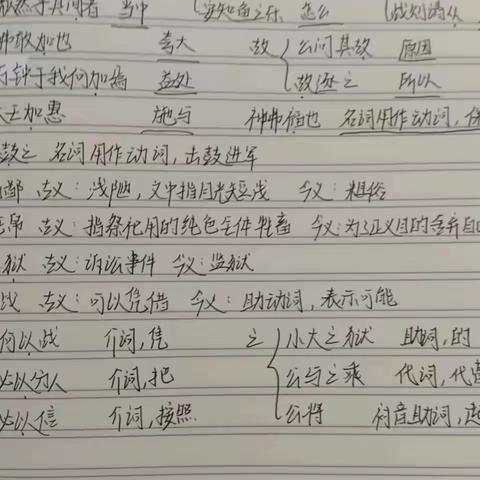 然于其间者 当中 安知鱼之乐 怎么 战则请从
弗敢加也 夸大 故 公问其故 原因
万钟于我何加焉 益处 故逐之 所以
大王加惠 施与 神弗福也 名词用作动词，保
鼓之 名词用作动词，击鼓进军
鄙 古义：浅陋，文中指目光短浅 今义：粗俗
古义：指祭祀用的纯色全体牲畜 今义：为了正义目的舍弃自
狱 古义：诉讼事件 今义：监狱
战 古义：可以凭借 今义：助动词，表示可能
何以战 介词，凭 之 小大之狱 助词，的
必以分人 介词，把 公与之乘 代词，代
必以信 介词，按照 公将 衬音助词，